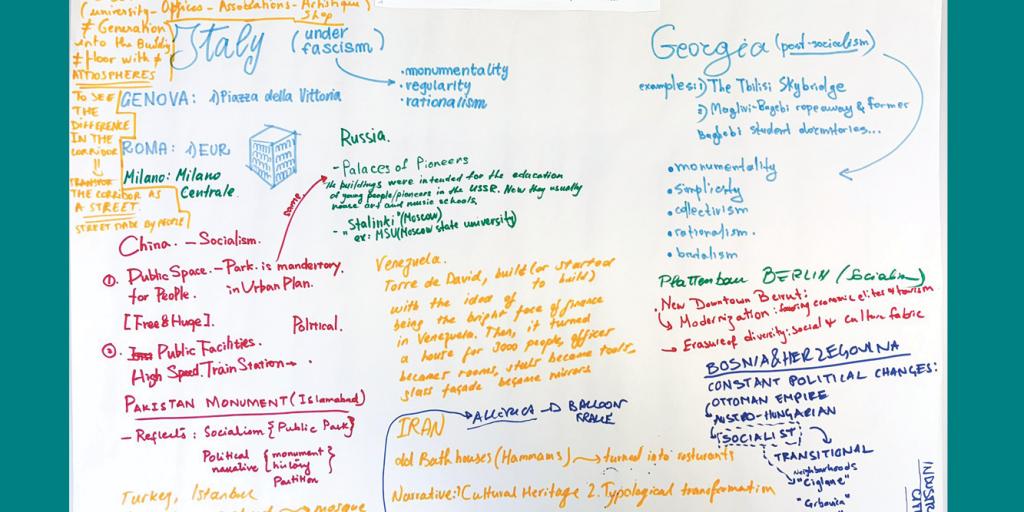 (university - Offices - Associations - Artistique Shop
≠ Generation
into the Building
≠ Floor with ≠
ATMOSPHERES
TO SEE
THE
DIFFERENCE
IN THE
CORRIDOR
THE CORRIDOR AS
A STREET
STREET MADE BY PEOPLE
Italy (under
fascism)
• monummentality
• regularity
• rationalism
GENOVA: 1) Piazza della Vittoria
ROMA: 1) EUR
Milano: Milano
Centrale.
Russia.
- Palaces of Pioneers
The buildings were intended for the education
of young people/pioneers in the USSR. Now they usually
house art and music schools.
- "Stalinki" (Moscow)
ex: MSU (Moscow state university)
same
China. - Socialism.
1. Public Space. - Park. is mandertory.
for People. in Urban Plan.
[Free & Huge]. Political.
2. Public Facilities.
High Speed. Train Station -
PAKISTAN MONUMENT (Islamabad)
- Reflects: Socialism {Public Park}
Political
narative
{monument
history
Partition}
Turkey, Istanbul
mosque
Venezuela.
Torre de David, build (or started
to build)
with the idea of
being the bright face of finance
in Venezuela. Then, it turned
a house for 3000 people, offices
becames rooms, became tools,
glass façade became mirrors
AMERICA → BALLOON
FRAME
IRAN
old Bath houses (Hammams) → turned into resturants
Narrative: 1 Cultural Heritage 2. Typological transformation
Georgia (post-socialism)
examples: 1) The Tbilisi Skybridge
2) Maglivi-Bagebi ropeaway & former
Bagebi student dormitories...
• monumentality
• simplicity
• collectivism
• rationalism.
• brutalism
Plattenbau BERLIN (Socialism)
New Downtown Beirut:
→ Modernization: economic elites & tourism
→ Erasure of diversity: social & culture fabric
BOSNIA & HERZEGOVINA
CONSTANT POLITICAL CHANGES:
OTTOMAN EMPIRE
AUSTRO-HUNGARIAN
SOCIALIST
TRANSITIONAL
Neighborhoods
"Ciglane"
"Grbavica"